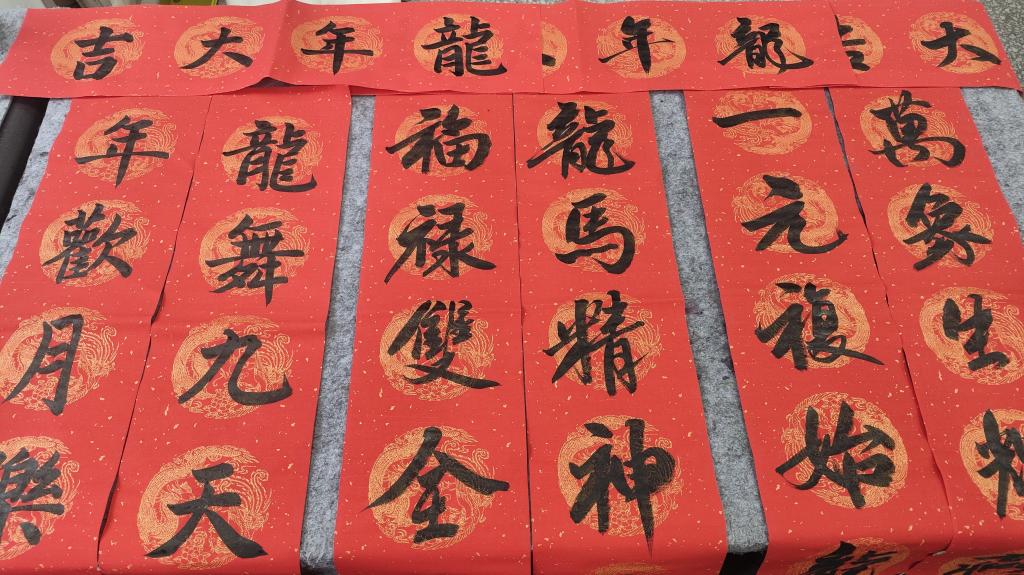 大
龍年
龍年大吉
萬象生
一元複始
龍馬精神
福禄雙全
龍舞九天
年歡月樂